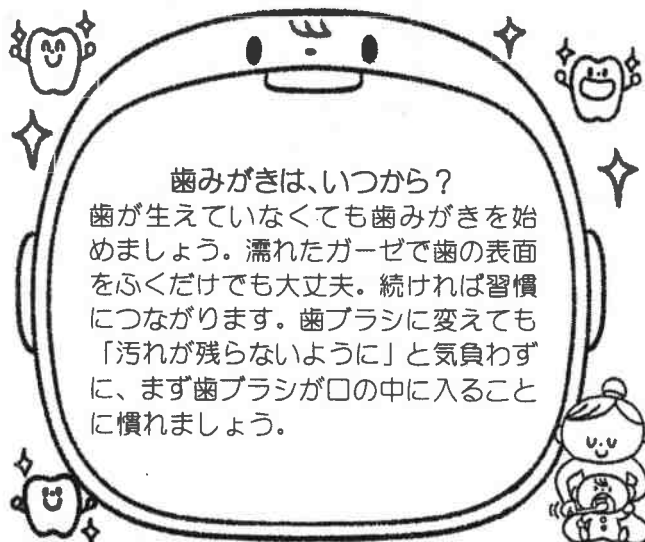 歯みがきは、いつから？
歯が生えていなくても歯みがきを始
めましょう。濡れたガーゼで歯の表面
をふくだけでも大丈夫。続ければ習慣
につながります。歯ブラシに変えても
「汚れが残らないように」と気負わず
に、まず歯ブラシが口の中に入ること
に慣れましょう。